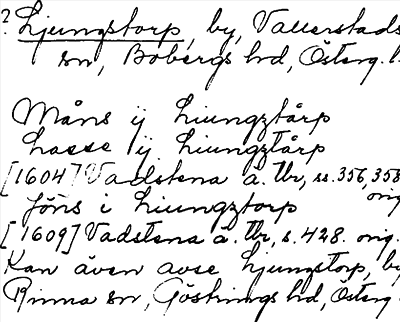 ? Ljungstorp, by, Vallerstads
sn, Bobergs hd, Österg. l.
Måns ij Liungztårp
Lasse ij Liungztårp
[1604] Vadstena ä. tbr, ss. 356, 358
orig.
Jöns i Liungztorp
[1609] Vadstena ä. tbr, s. 428. orig.
Kan även avse Ljungstorp, by,
Rinna sn, Göstrings hd, Österg.